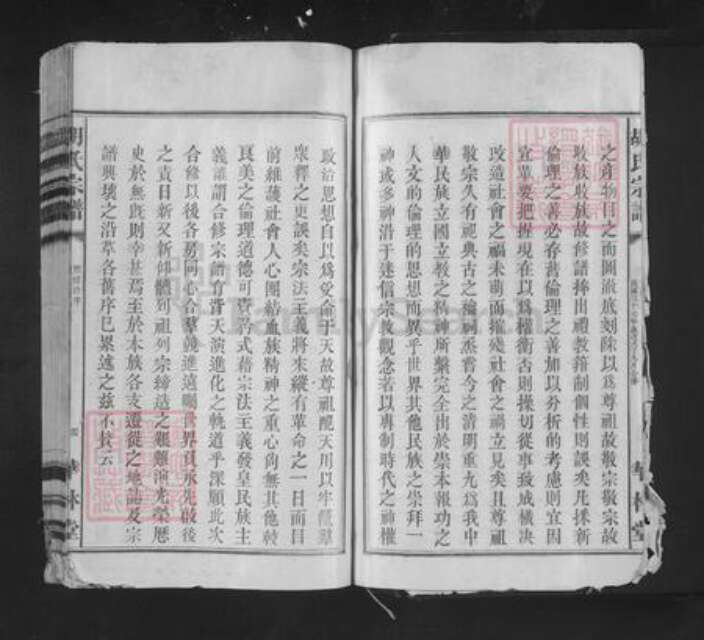 胡氏宗譜
之產物目之而圖澈底刻除以爲尊祖故敬宗敬宗故
收族收族故修譜捧出禮教箝制個性則誤矣凡採新
倫理之善必存舊倫理之善加以分析的考慮則宜因
宜革要把握現在以爲權衡否則操切從事幾成機決
改造社會之福未萌而摧殘社會之禍立見矣且尊祖
敬宗久有祀典古之禴祠烝嘗今之清明重九爲我中
華民族立國立教之精神所繫完全出於崇本報功之
人文的倫理的思想而異乎世界其他民族之崇拜一
神或多神沿于迷信宗教觀念若以專制時代之神權
華林堂
政治思想自以爲受命于天故尊祖配天用以牢籠羣
衆釋之更誤矣宗法主義將來縱有革命之一日而目
前維護社會人心團結血族精神之重心尚無其他較
良美之倫理道德可資矜式藉宗法主義發皇民族主
義誰謂合修宗譜有背天演進化之軌道乎深願此次
合修以後各房同心合羣競進遠矚世界頁承先啟後
之責日新又新仰體列祖列宗締造之艱難演光榮歷
史於無旣則幸甚焉至於本族各支遷徙之地誌及宗
譜興壞之沿革各舊序已累述之茲不贅云
胡氏宗譜
華林堂
FamilySearch